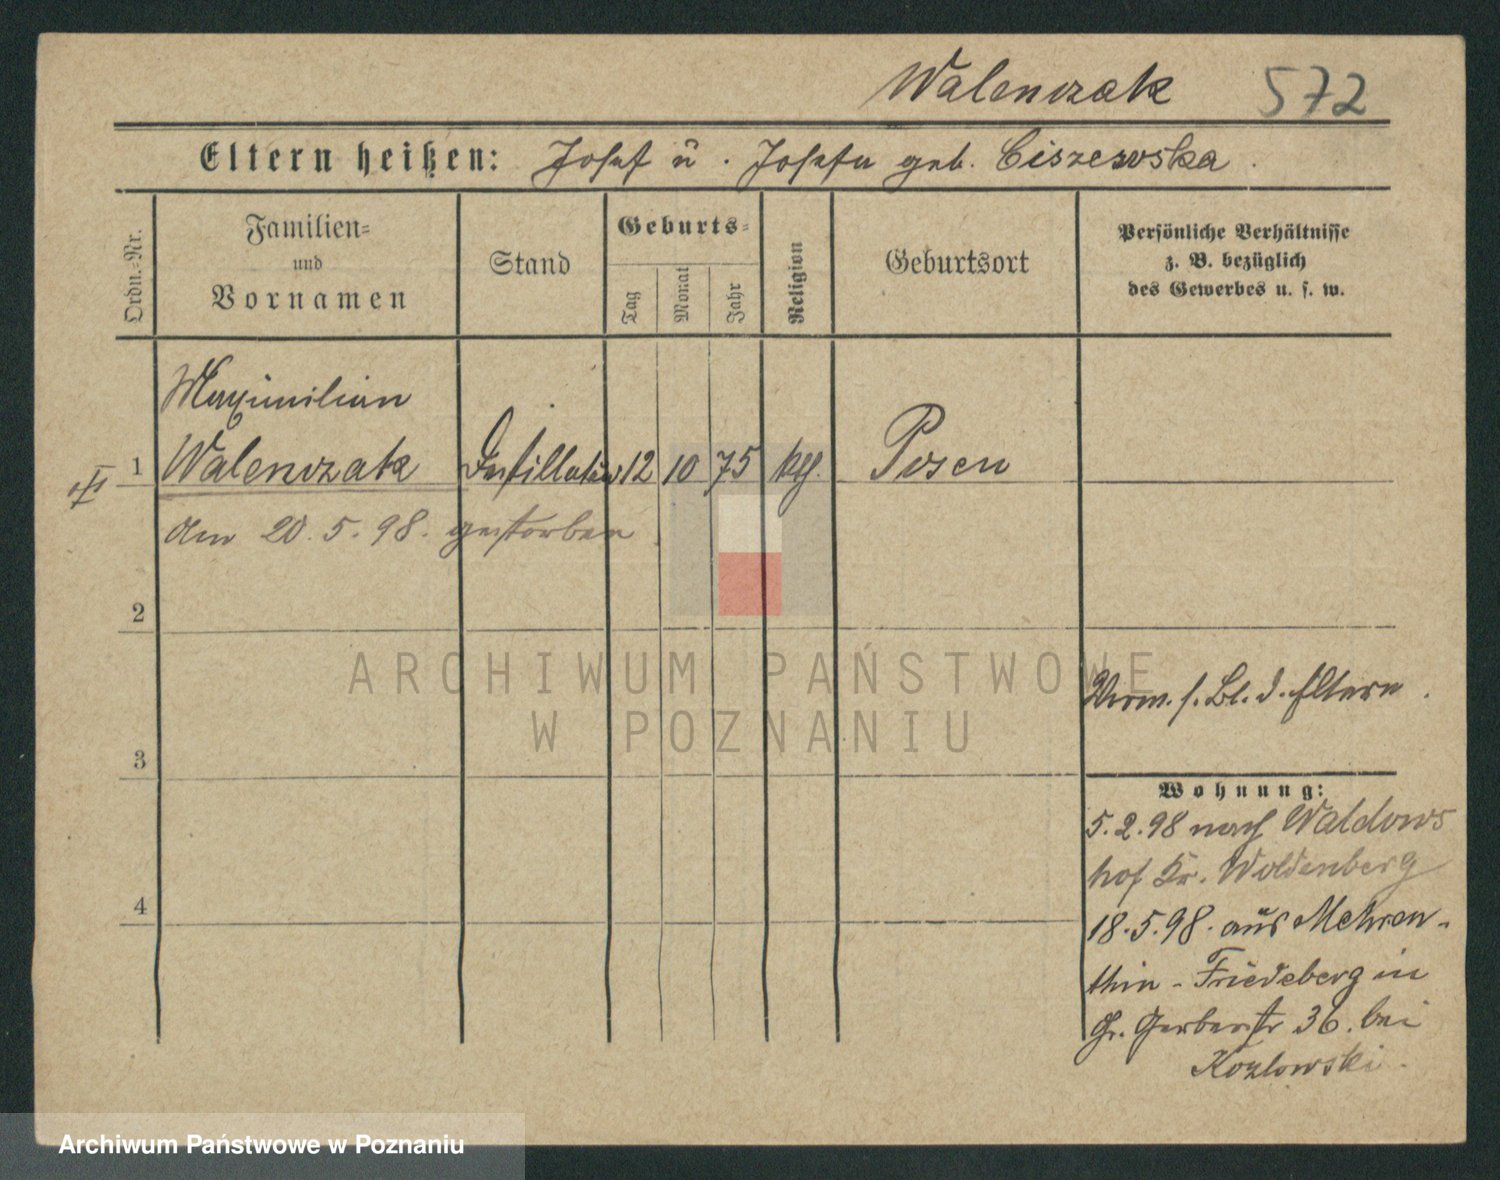 Walenczak 572
Eltern heißen: Josef u. Josefa geb. Ciszewska.
Ordn.-Nr.
Familien-
und
Vornamen
Stand
Geburts-
Tag
Monat
Jahr
Religion
Geburtsort
Persönliche Verhältnisse
z. B. bezüglich
des Gewerbes u. s. w.
Maximilian
1 Walenczak Destillateur 12 10 75 Posen
Am 20.5.98. gestorben.
2
ARCHIWUM PAŃSTWOWE
W POZNANIU
s. Bl. d. Eltern.
3
Wohnung:
5.2.98 nach Waldows
hof Kr. Woldenberg
4
18.5.98. aus Mehren-
thin - Friedeberg in
Gr. Gerberstr 36. bei
Kozlowski.
Archiwum Państwowe w Poznaniu